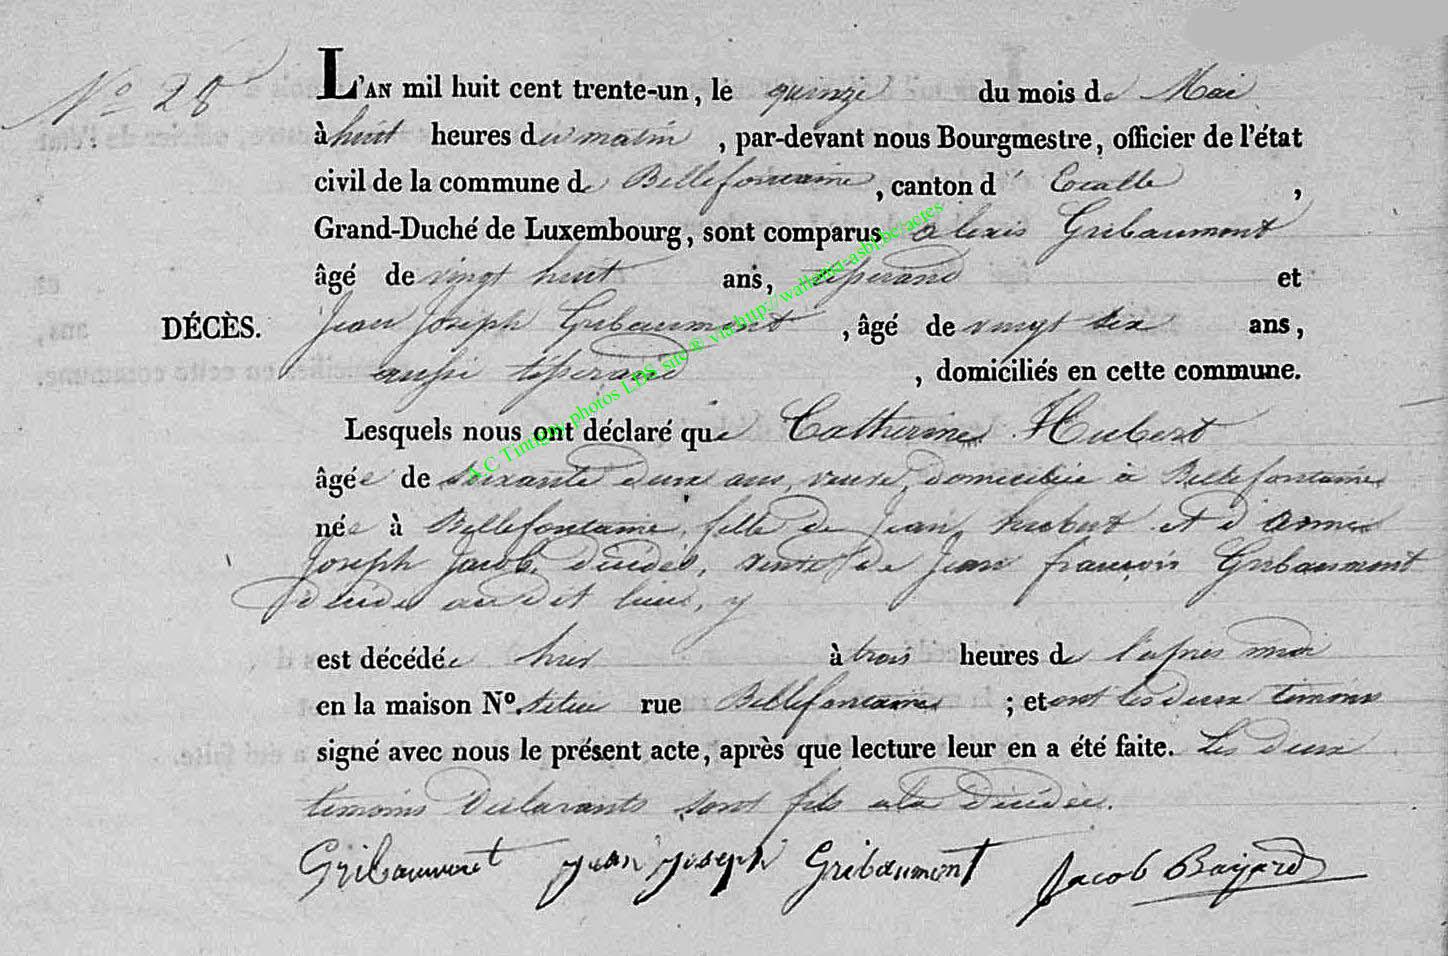 No 28
L'AN mil huit cent trente-un, le quinze du mois de Mai
à huit heures du matin, par-devant nous Bourgmestre, officier de l'état
civil de la commune de Bellefontaine, canton d'Etalle,
Grand-Duché de Luxembourg, sont comparus alexis Gribaumont
âgé de vingt huit ans, tisserand et
DÉCÈS. Jean Joseph Gribaumont, âgé de vingt six ans,
aussi tisserand, domiciliés en cette commune.
Lesquels nous ont déclaré que Catherine Hubert
âgée de soixante deux ans, veuve, domiciliée à Bellefontaine
née à Bellefontaine, fille de Jean hubert et d'anne
Joseph Jacob, décédés, veuve de Jean françois Gribaumont
décédé au dit lieu, y
est décédée hier à trois heures de l'après midi
en la maison No. située rue Bellefontaine ; et ont les deux témoins
signé avec nous le présent acte, après que lecture leur en a été faite. Les deux
témoins déclarants sont fils a la décédée.
Gribaumont Jean Joseph Gribaumont Jacob Bayard
A.C Tintigny photos LDS site @ via http://wallonia-asbl.be/actes